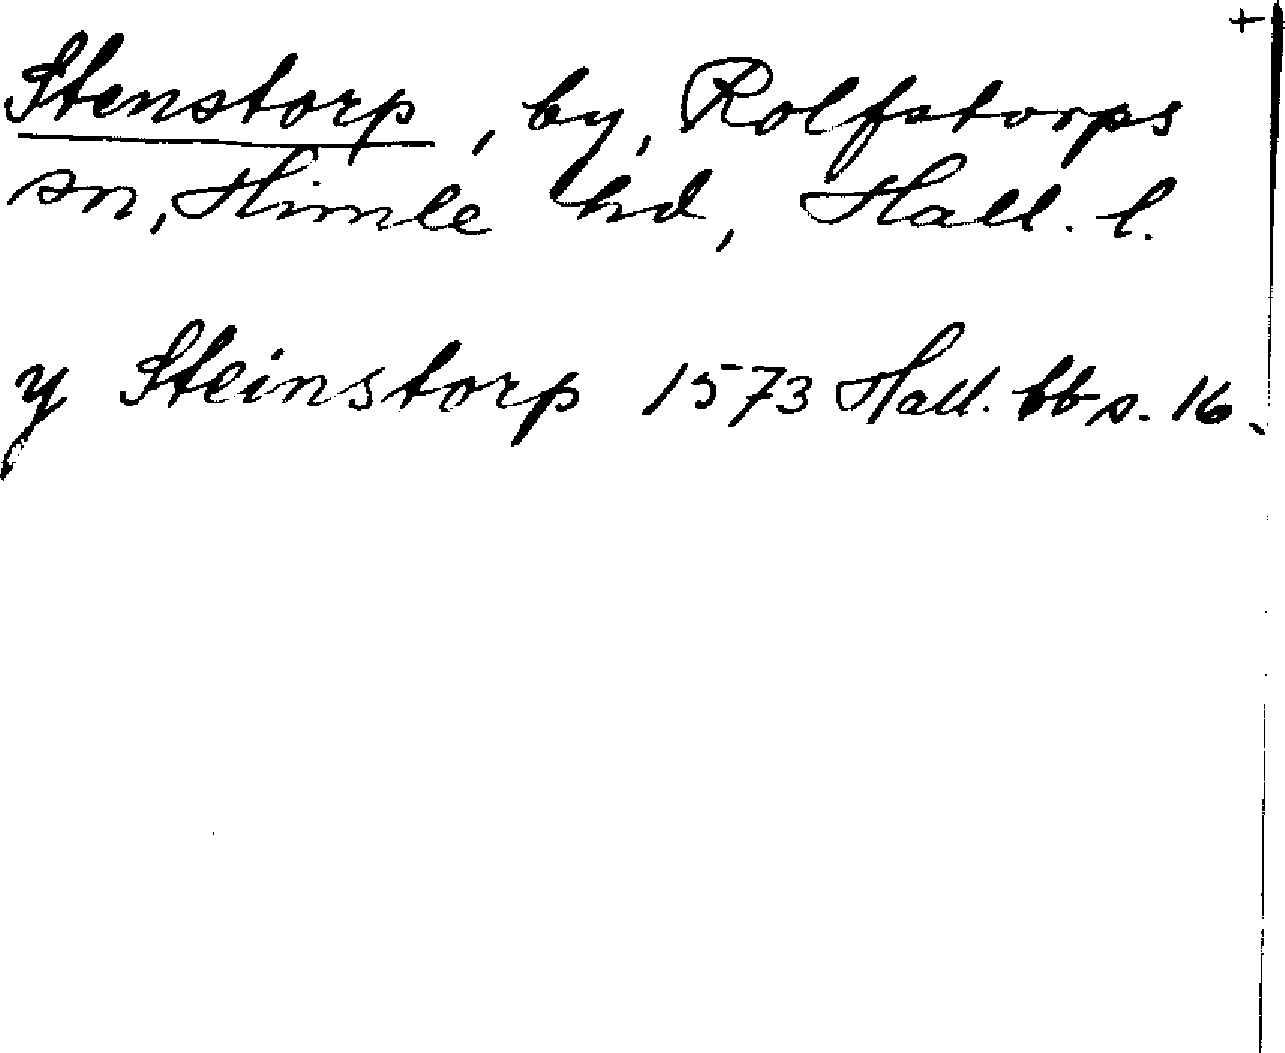 +
Stenstorp, by, Rolfstorps
sn, Himle hd, Hall. l.
y Steinstorp 1573 Hall. bb s. 16.